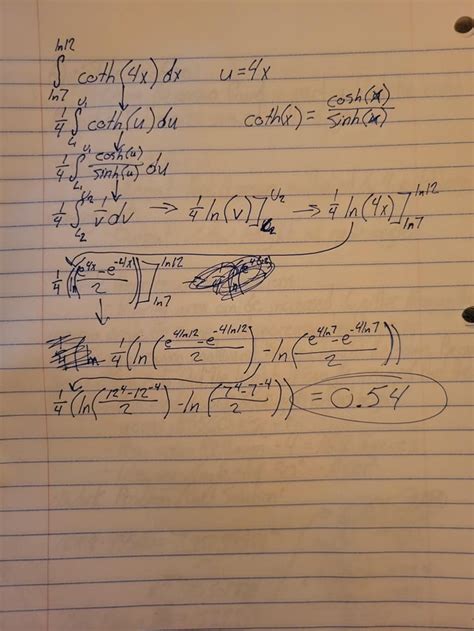 ∫_{ln7}^{ln12} coth(4x) dx   u=4x
1/4 ∫_{L₁}^{U₁} coth(u) du   coth(x) = cosh(x)/sinh(x)
1/4 ∫_{L₁}^{U₁} cosh(u)/sinh(u) du
1/4 ∫_{L₂}^{U₂} 1/v dv → 1/4 ln(v)]_{L₂}^{U₂} → 1/4 ln(4x)]_{ln7}^{ln12}
1/4 (ln((e^{4x}-e^{-4x})/2))]_{ln7}^{ln12}
1/4 (ln((e^{4ln12}-e^{-4ln12})/2) - ln((e^{4ln7}-e^{-4ln7})/2))
1/4 (ln((12^4-12^{-4})/2) - ln((7^4-7^{-4})/2)) = 0.54